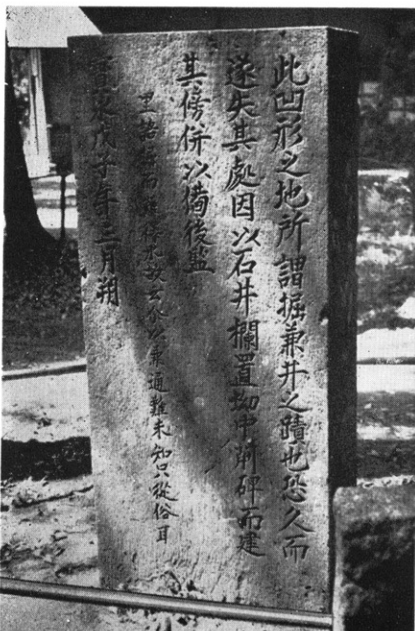 此凹形之地所謂掘兼井之蹟也恐久而
遂失其處因以石井欄置坳中削碑而建
其傍併以備後監
里語掘而難得水故云尒以兼通難未知只從俗耳
寶永戊子年三月朔